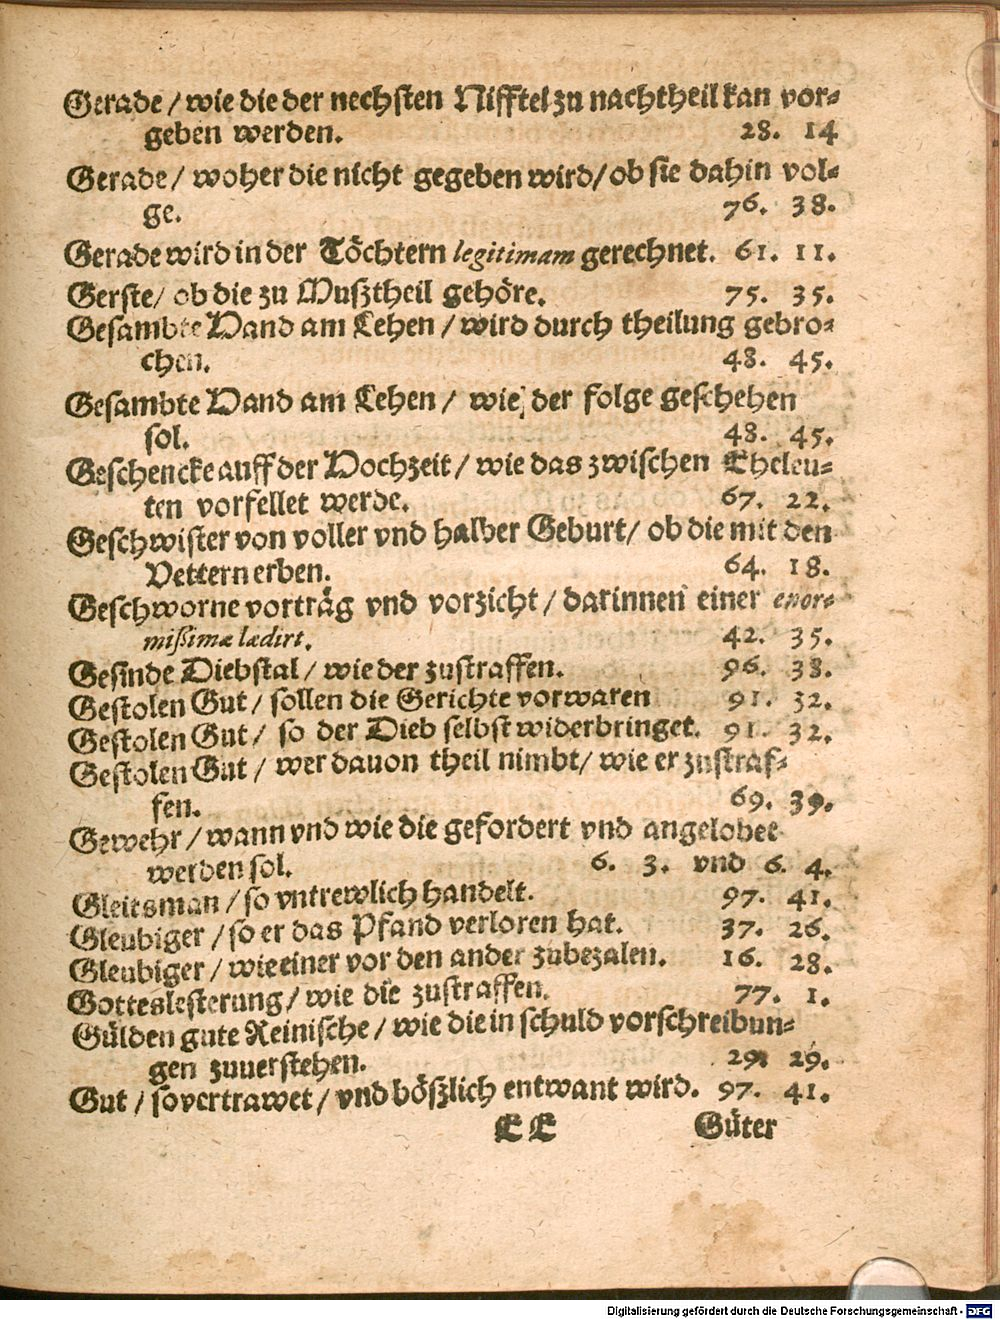 Gerade / wie die der nechsten Nifftel zu nachtheil kan vor-
geben werden. 28. 14
Gerade / woher die nicht gegeben wird / ob sie dahin vol-
ge. 76. 38.
Gerade wird in der Töchtern legitimam gerechnet. 61. 11.
Gerste / ob die zu Mußtheil gehöre. 75. 35.
Gesambte Hand am Lehen / wird durch theilung gebro-
chen. 48. 45.
Gesambte Hand am Lehen / wie der folge geschehen
sol. 48. 45.
Geschencke auff der Hochzeit / wie das zwischen Eheleu-
ten vorfellet werde. 67. 22.
Geschwister von voller vnd halber Geburt / ob die mit den
Vettern erben. 64. 18.
Geschworne vorträg vnd vorzicht / darinnen einer enor-
mißimæ lædirt. 42. 35.
Gesinde Diebstal / wie der zustraffen. 96. 38.
Gestolen Gut / sollen die Gerichte vorwaren 91. 32.
Gestolen Gut / so der Dieb selbst widerbringet. 91. 32.
Gestolen Gut / wer dauon theil nimbt / wie er zustraf-
fen. 69. 39.
Gewehr / wann vnd wie die gefordert vnd angelobet
werden sol. 6. 3. vnd 6. 4.
Gleitsman / so vntrewlich handelt. 97. 41.
Gleubiger / so er das Pfand verloren hat. 37. 26.
Gleubiger / wie einer vor den ander zubezalen. 16. 28.
Gotteslesterung / wie die zustraffen. 77. 1.
Gülden gute Reinische / wie die in schuld vorschreibun-
gen zuuerstehen. 29. 29.
Gut / so vertrawet / vnd bößlich entwant wird. 97. 41.
EE Güter
Digitalisierung gefördert durch die Deutsche Forschungsgemeinschaft - DFG